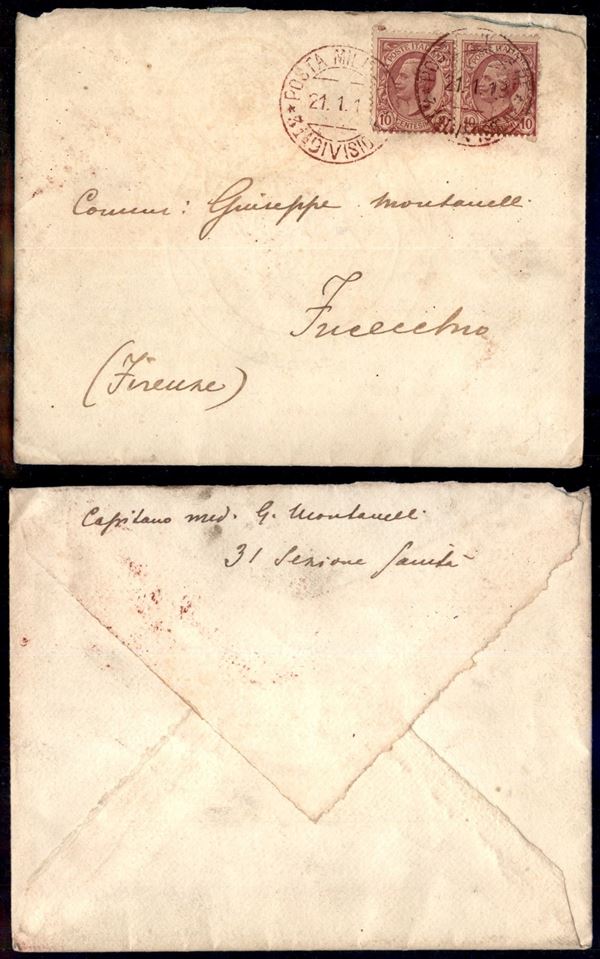 POSTA MIL
21.1.1
DIVISIONE
POSTE ITAL
10
CENTESIMI
21.1.19
10
10
Comm: Giuseppe Montanelli
Fucecchio
(Firenze)
Capitano med. G. Montanelli
31 Sezione Sanità